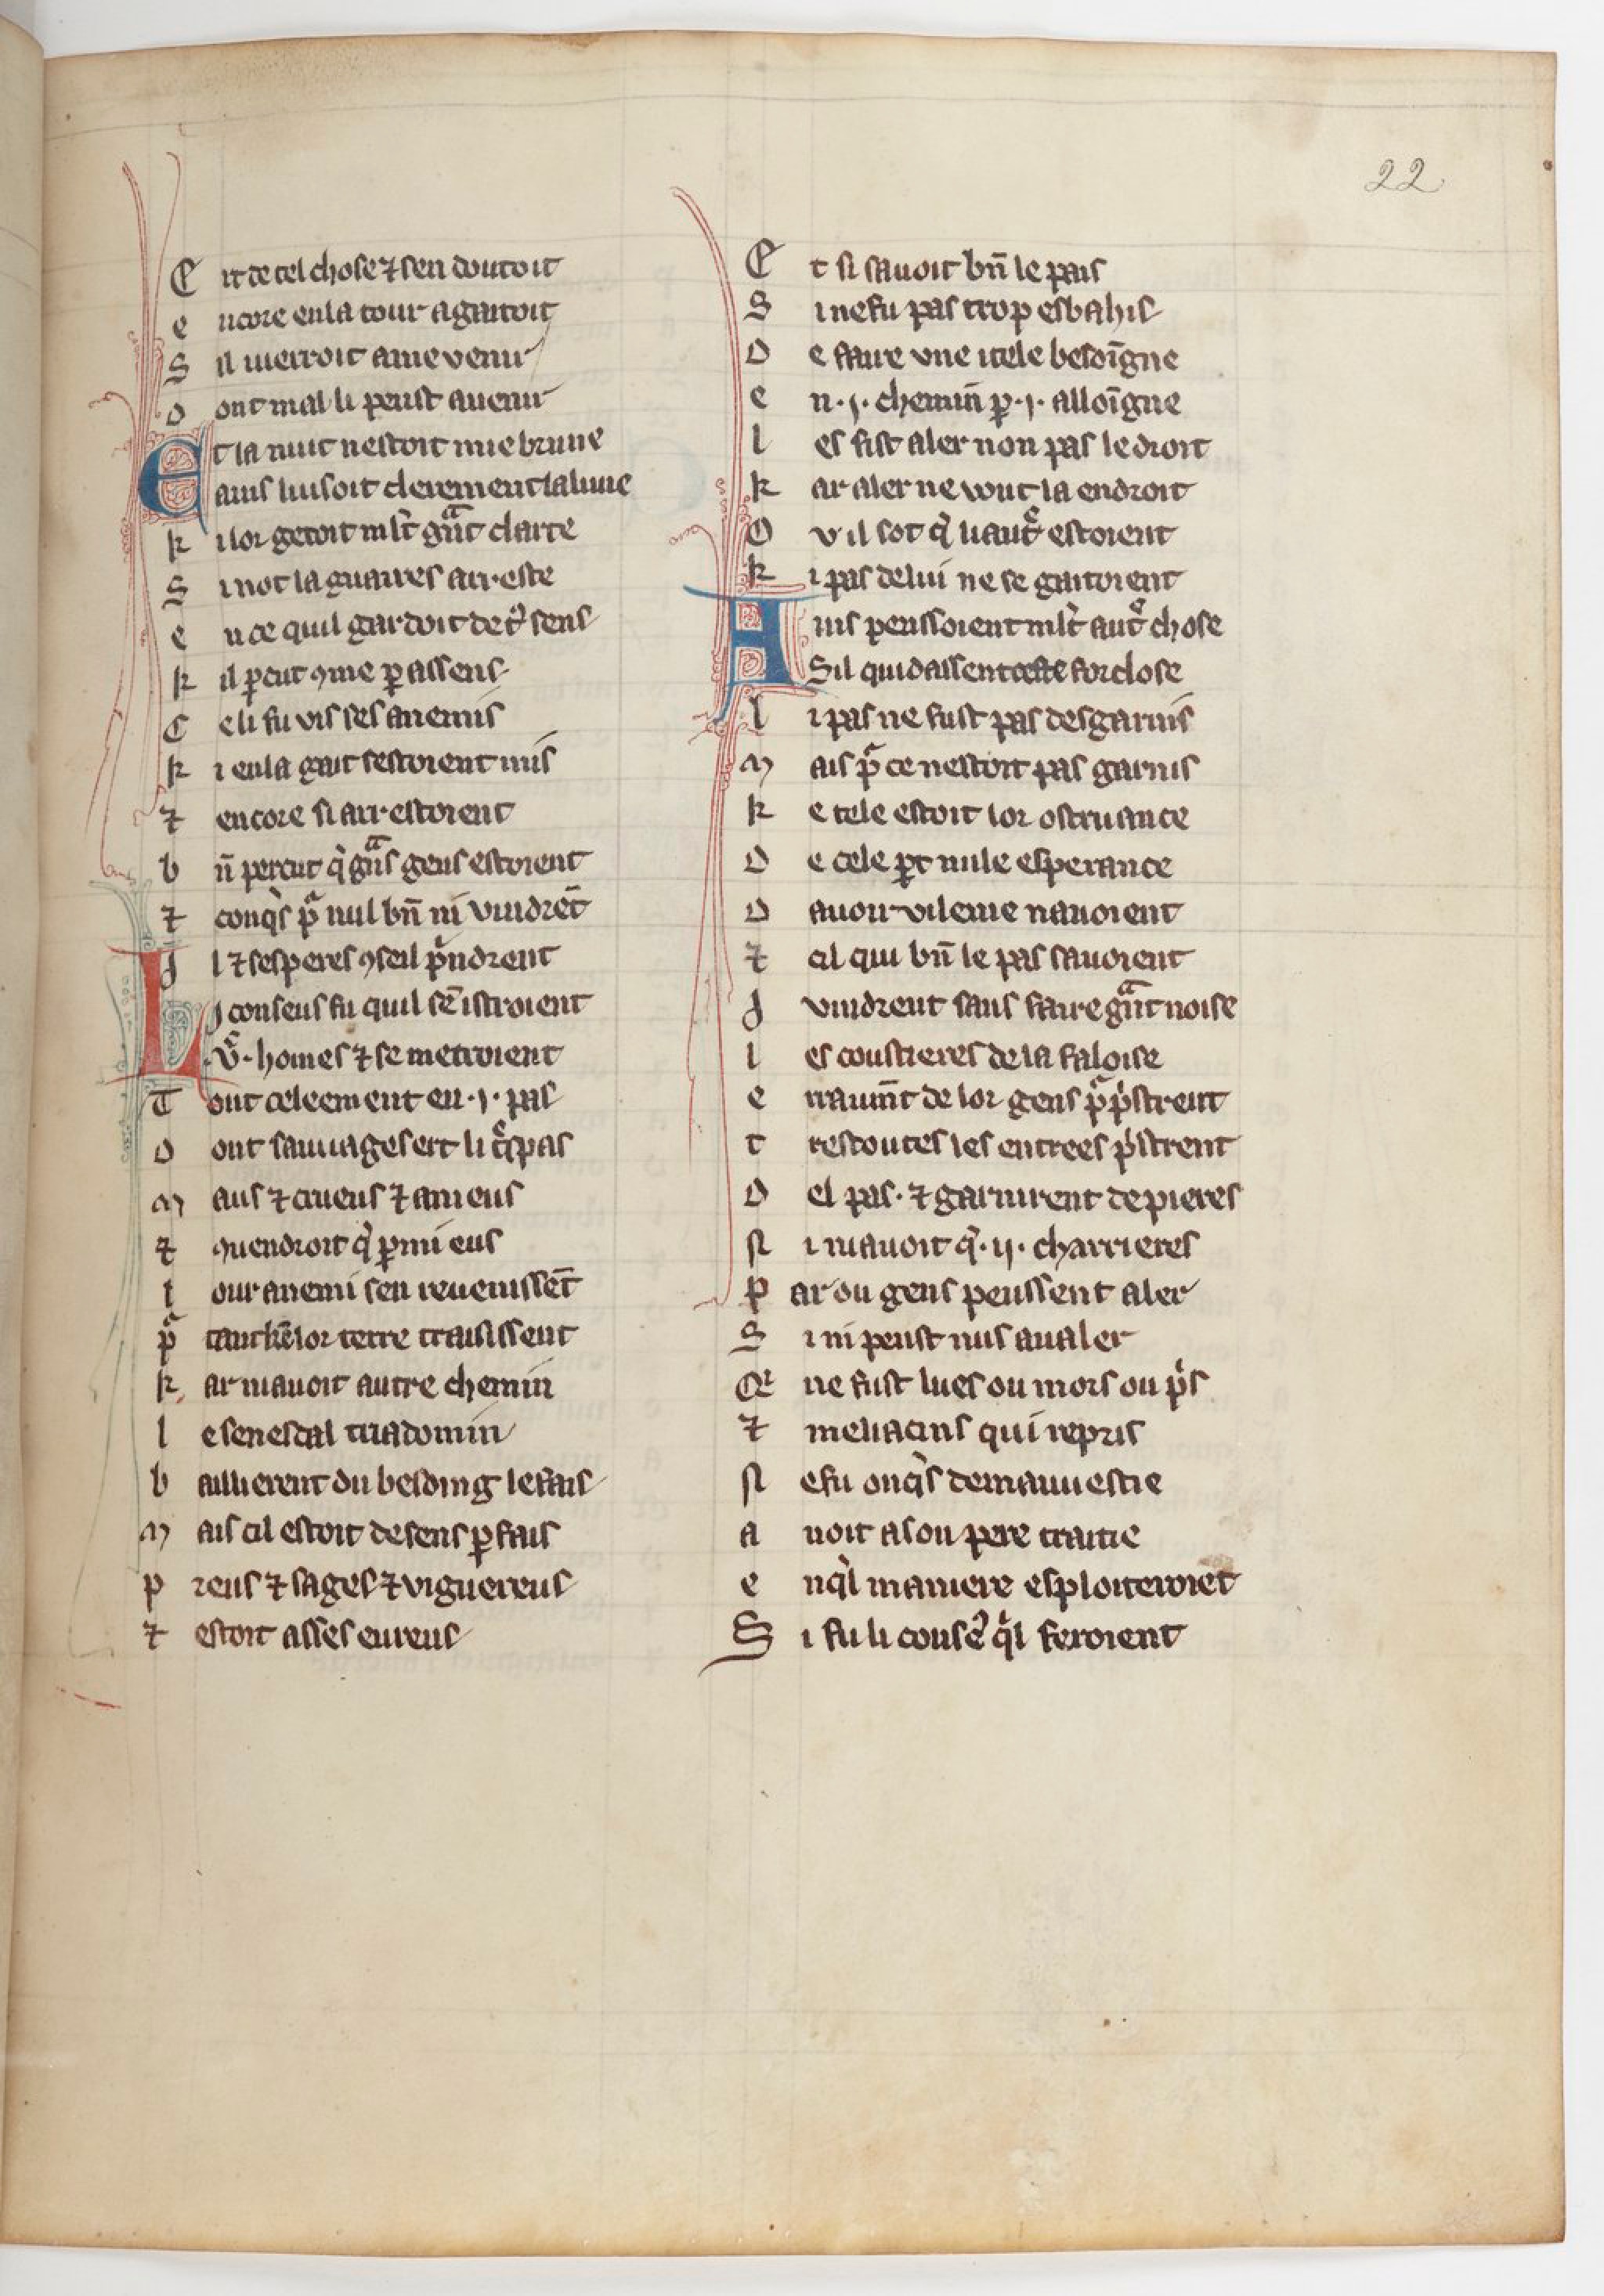 22
E it de cel chose ⁊ sen doutoit
e ncore en la tour agaitoit
S il uerroit ame venir
D ont mal li peust auenir
Et la nuit nestoit mie brune
ains luisoit clerement la lune
k i lor getoit ml̃t gͣnt clarte
S i not la guaires arreste
e n ce quil gardoit de tͦ sens
k il ꝑcut ꝯme ꝑ assens
C e li fu vis ses anemis
k i en la gait sestoient mis
⁊ encore si arrestoient
b n̄ percut q̇ gͣns gens estoient
⁊ conq̇s pͣ nul bn̄ ni vindrēt
J l ⁊ ses peres ꝯseil pͣndrent
Lj consens fu quil sē istroient
.vͨ. homes ⁊ se metroient
T out celeement en .j. pas
D ont sauuages ert li tͤspas
m aus ⁊ crueus ⁊ anieus
⁊ ꝯuendroit q̇ ꝑmi eus
l our anemi sen reuenissēt
pͣ tant kē lor terre traisissent
k ar niauoit autre chemin
l e senescal triadomin
b aillierent du besoing le fais
m ais cil estoit de sens ꝑfais
p reus ⁊ sages ⁊ viguereus
⁊ estoit asses eureus
E t si sauoit bn̄ le pais
S i ne fu pas trop esbahis
D e faire vne itele besoīgne
e n .j. chemin ꝑ .j. alloīgne
l es fist aler non pas le droit
k ar aler ne vout la endroit
O v il sot q̇ li autͤ estoient
k i pas de lui ne se gaitoient
Ains penssoient ml̃t autͤ chose
Sil quidassent ceste forclose
l i pas ne fust pas desgarnis
m ais pͣ ce nestoit pas garnis
k e tele estoit lor ostruance
D e cele ꝑt nule esperance
D auoir vilenie nauoient
⁊ cil qui bn̄ le pas sauoient
J vindrent sans faire gͣnt noise
l es coustieres de la faloise
e rraum̄t de lor gens pͣpͥstrent
t restoutes les entrees pͥstrent
D el pas. ⁊ garnirent de pieres
N i niauoit q̇ .ij. charrieres
P ar ou gens peussent aler
S i ni peust nus aualer
Q̇ ne fust lues ou mors ou pͥs
⁊ meliacins qui repris
N e fu onq̇s de mauuestie
a uoit a son pere traitie
e n q̇l maniere esploiteroiēt
S i fu li conseͬ q̇l feroient